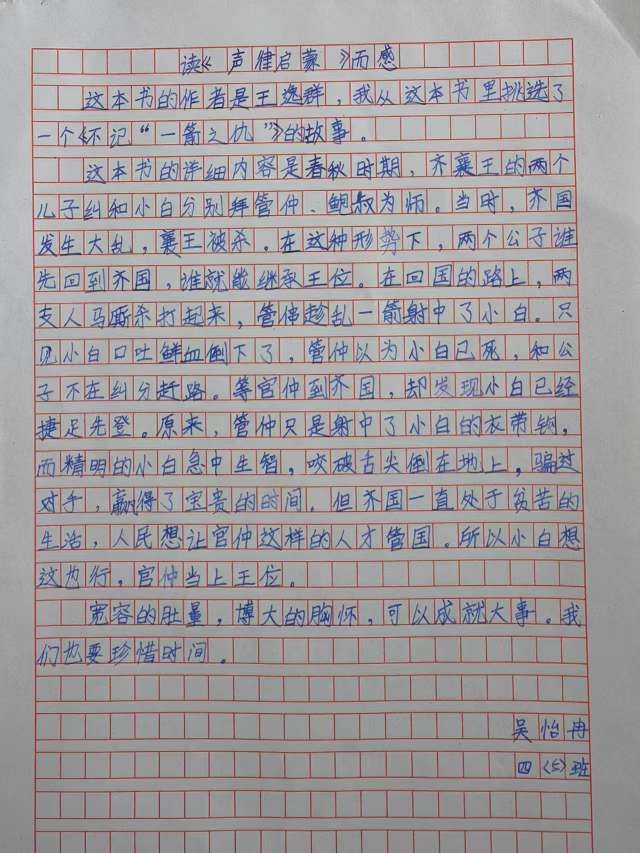 读《声律启蒙》而感
这本书的作者是王逸群，我从这本书里挑选了
一个《不记“一箭之仇”》的故事。
这本书的详细内容是春秋时期，齐襄王的两个
儿子纠和小白分别拜管仲、鲍叔为师。当时，齐国
发生大乱，襄王被杀。在这种形势下，两个公子谁
先回到齐国，谁就能继承王位。在回国的路上，两
支人马厮杀打起来，管仲趁乱一箭射中了小白。只
见小白口吐鲜血倒下了，管仲以为小白已死，和公
子不在纠分赶路。等官仲到齐国，却发现小白已经
捷足先登。原来，管仲只是射中了小白的衣带钩，
而精明的小白急中生智，咬破舌尖倒在地上，骗过
对手，赢得了宝贵的时间。但齐国一直处于贫苦的
生活，人民想让官仲这样的人才管国。所以小白想
这也行，官仲当上王位。
宽容的肚量，博大的胸怀，可以成就大事。我
们也要珍惜时间。
吴怡冉
四（5）班